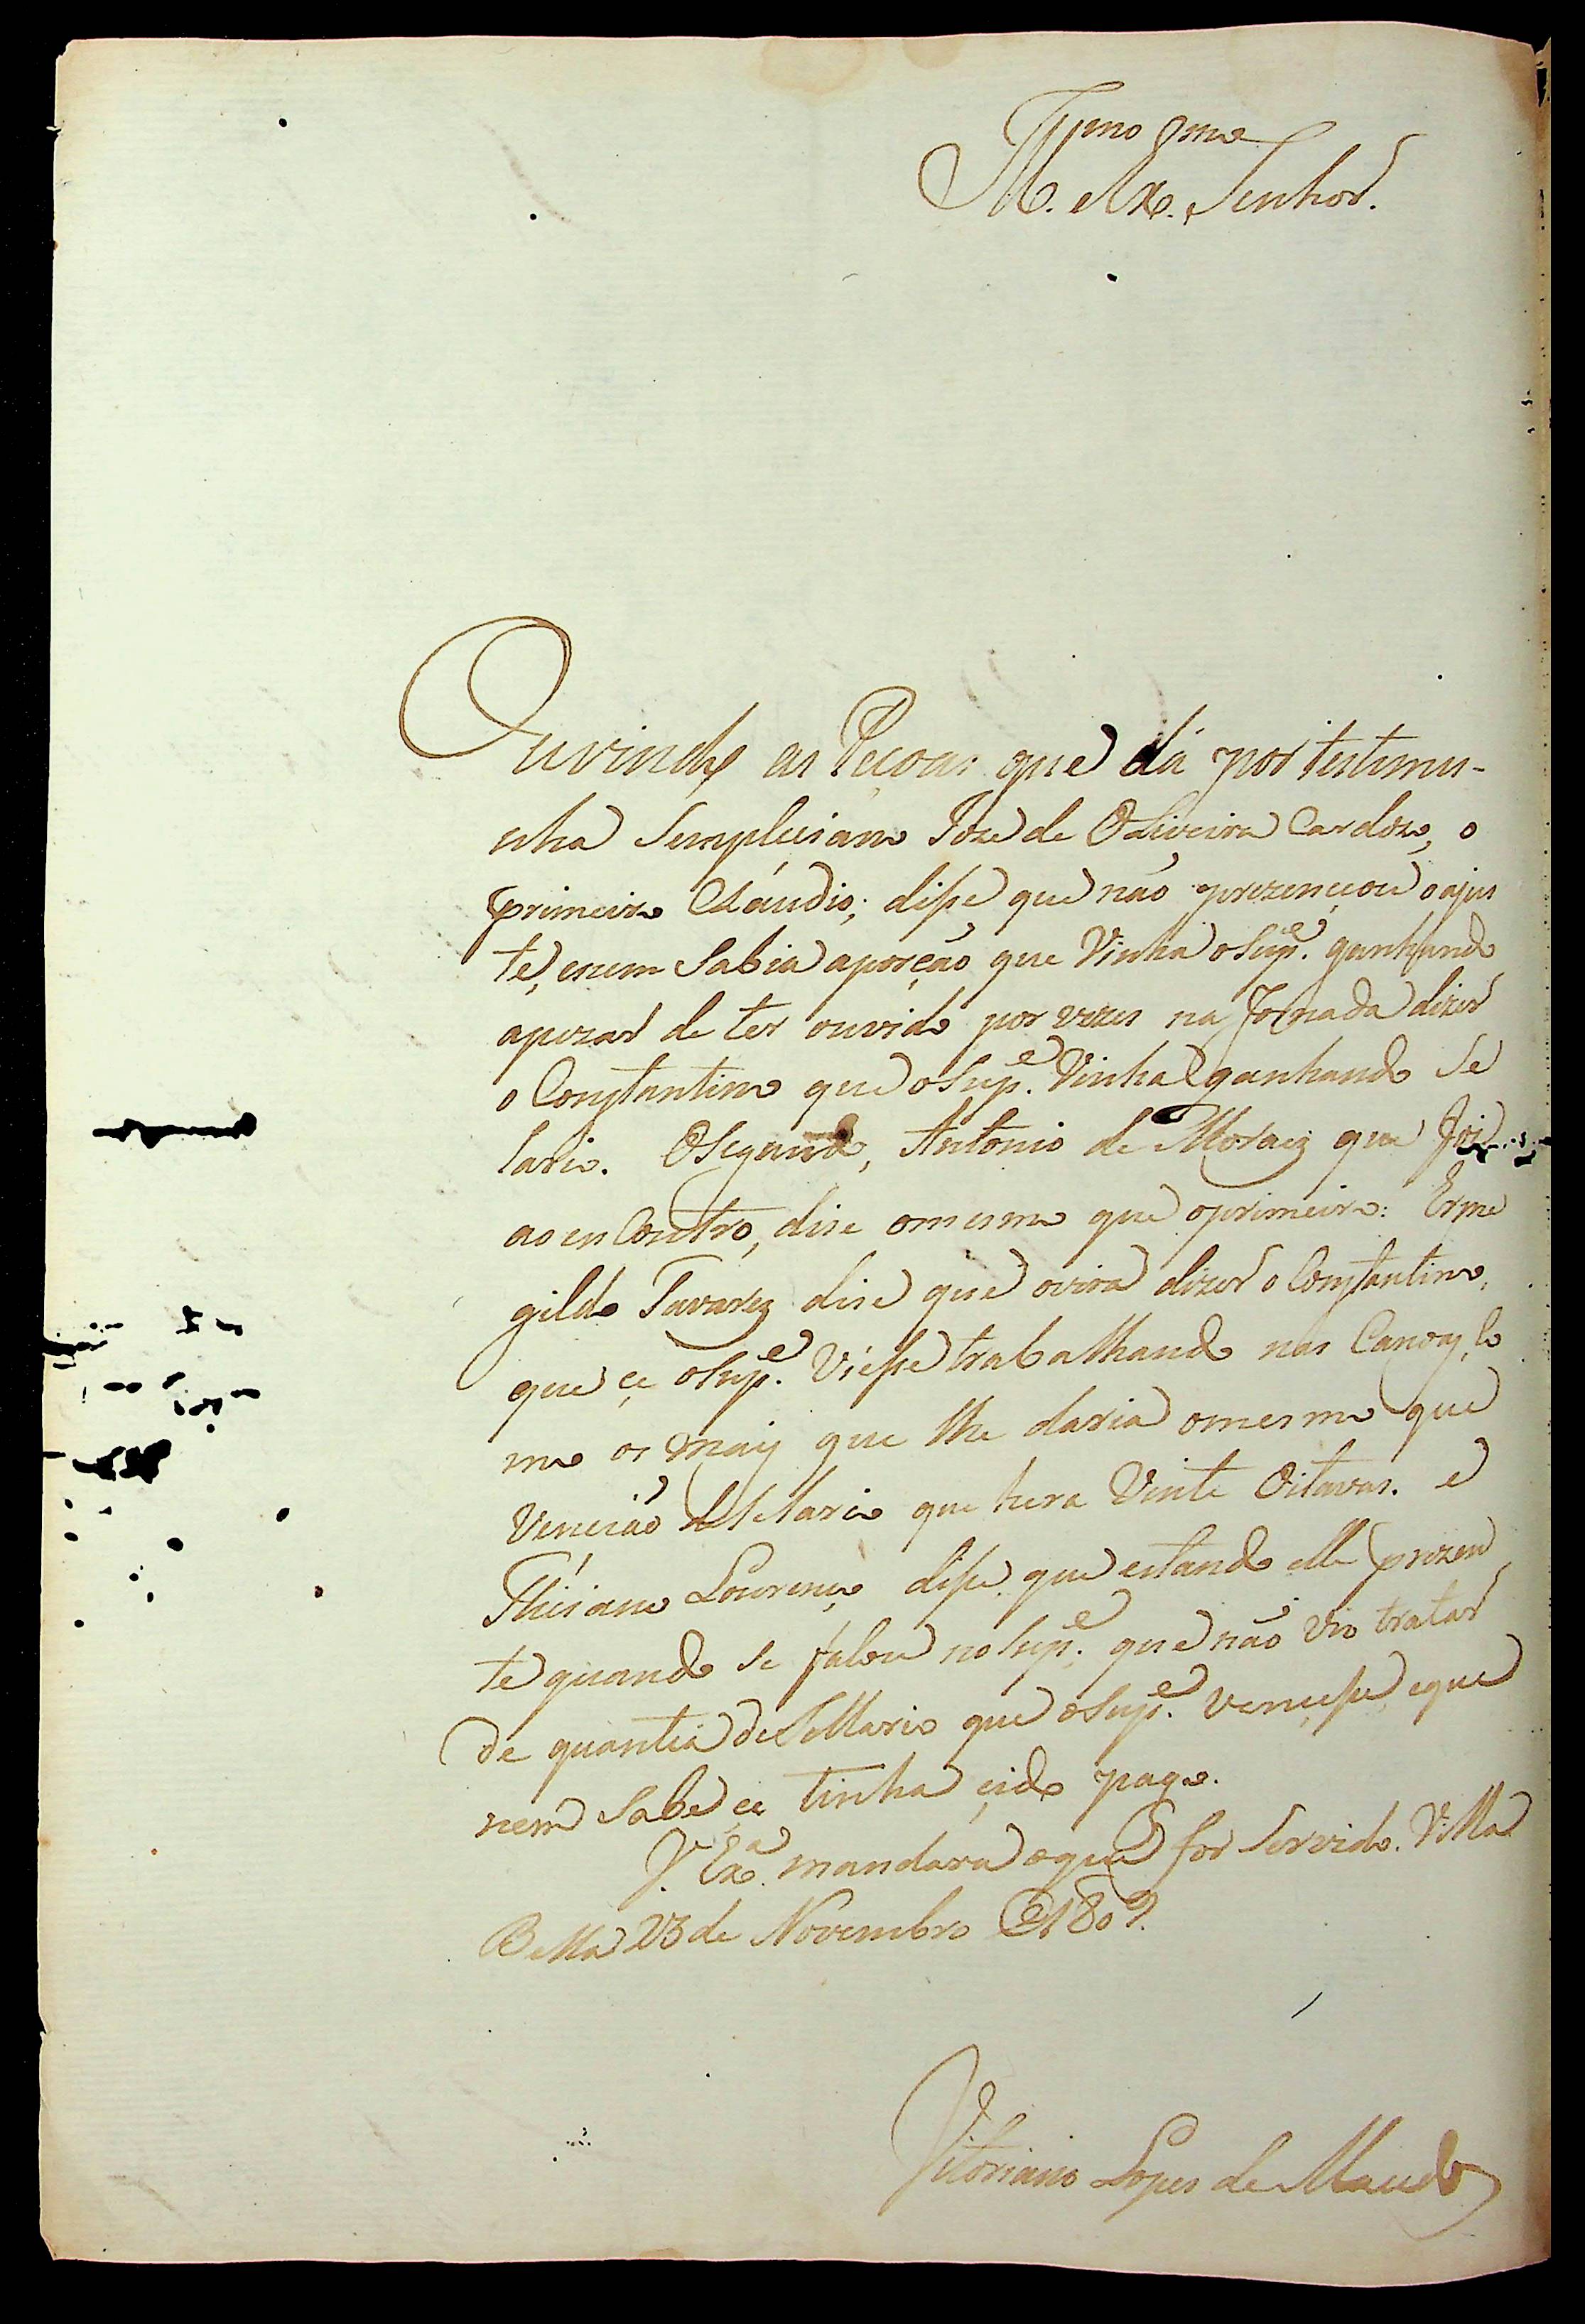 Illmo Exmo
Il. e Ex. Senhor.
Ouvindo as Peçoas que dá por testemu-
nha Sempliciano Joze de Oliveira Cardozo, o
primeiro Cláudio; disse que não prezenciou o ajus
te, enem Sabia aporção que Vinha oSup.e ganhando
apezar de ter ouvido por vezes na Jornada dizer
o Constantino que oSup.e Vinha ganhando Se
lario. OSegundo, Antonio de Moraiz que foi
ao en Contro, dise omesmo que oprimeiro: Erme
gildo Tavarez dise que ovira dizer o Constantino,
que ce oSup.e Viesse trabalhando nas Canoaz, Co
mo os maiz que lhe daria omesmo que
Vencião de Selario que hera Vinte Oitavas. e
Lourenço disse que estando elle prezen
te quando se falou no Sup.e que não Vio tratar
de quantia de Sellario que oSup.e vencesse, eque
nem Sabe ce tinha çido pago.
V. Ex.a mandara oque for Servido. Villa
Bella 23 de Novembro de 1809.
Vitoriano Lopes de Macedo